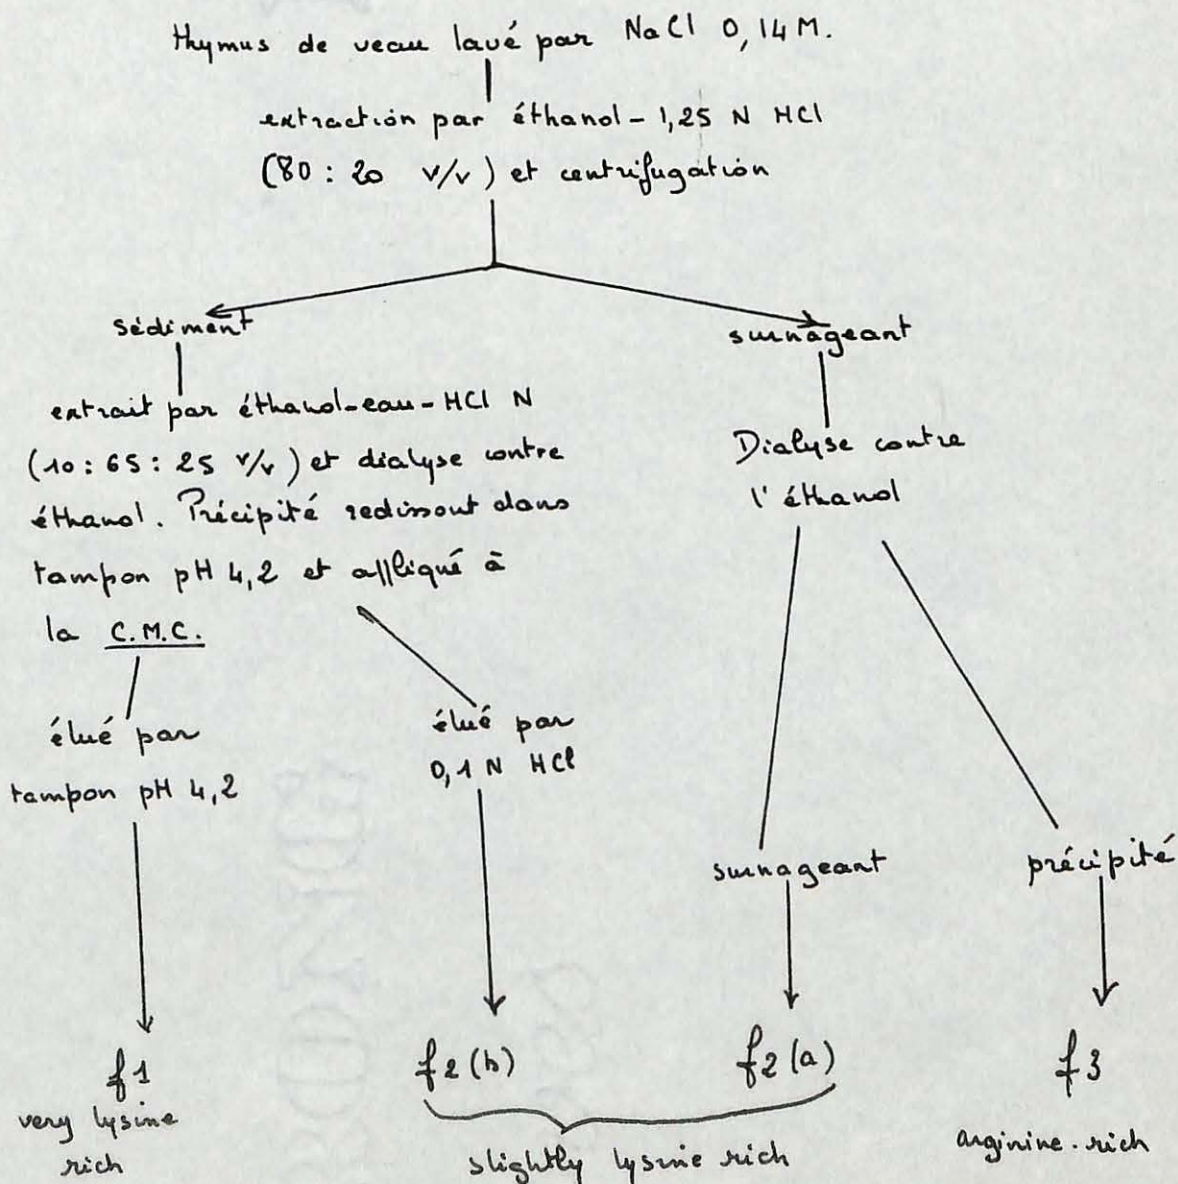 thymus de veau lavé par NaCl 0,14 M.
extraction par éthanol - 1,25 N HCl
(80 : 20 v/v) et centrifugation
sédiment
surnageant
extrait par éthanol-eau-HCl N
(10 : 65 : 25 v/v) et dialyse contre
éthanol. Précipité redissout dans
tampon pH 4,2 et appliqué à
la C.M.C.
Dialyse contre
l'éthanol
élué par
tampon pH 4,2
élué par
0,1 N HCl
surnageant
précipité
f1
very lysine
rich
f2(b)
f2(a)
slightly lysine rich
f3
arginine-rich